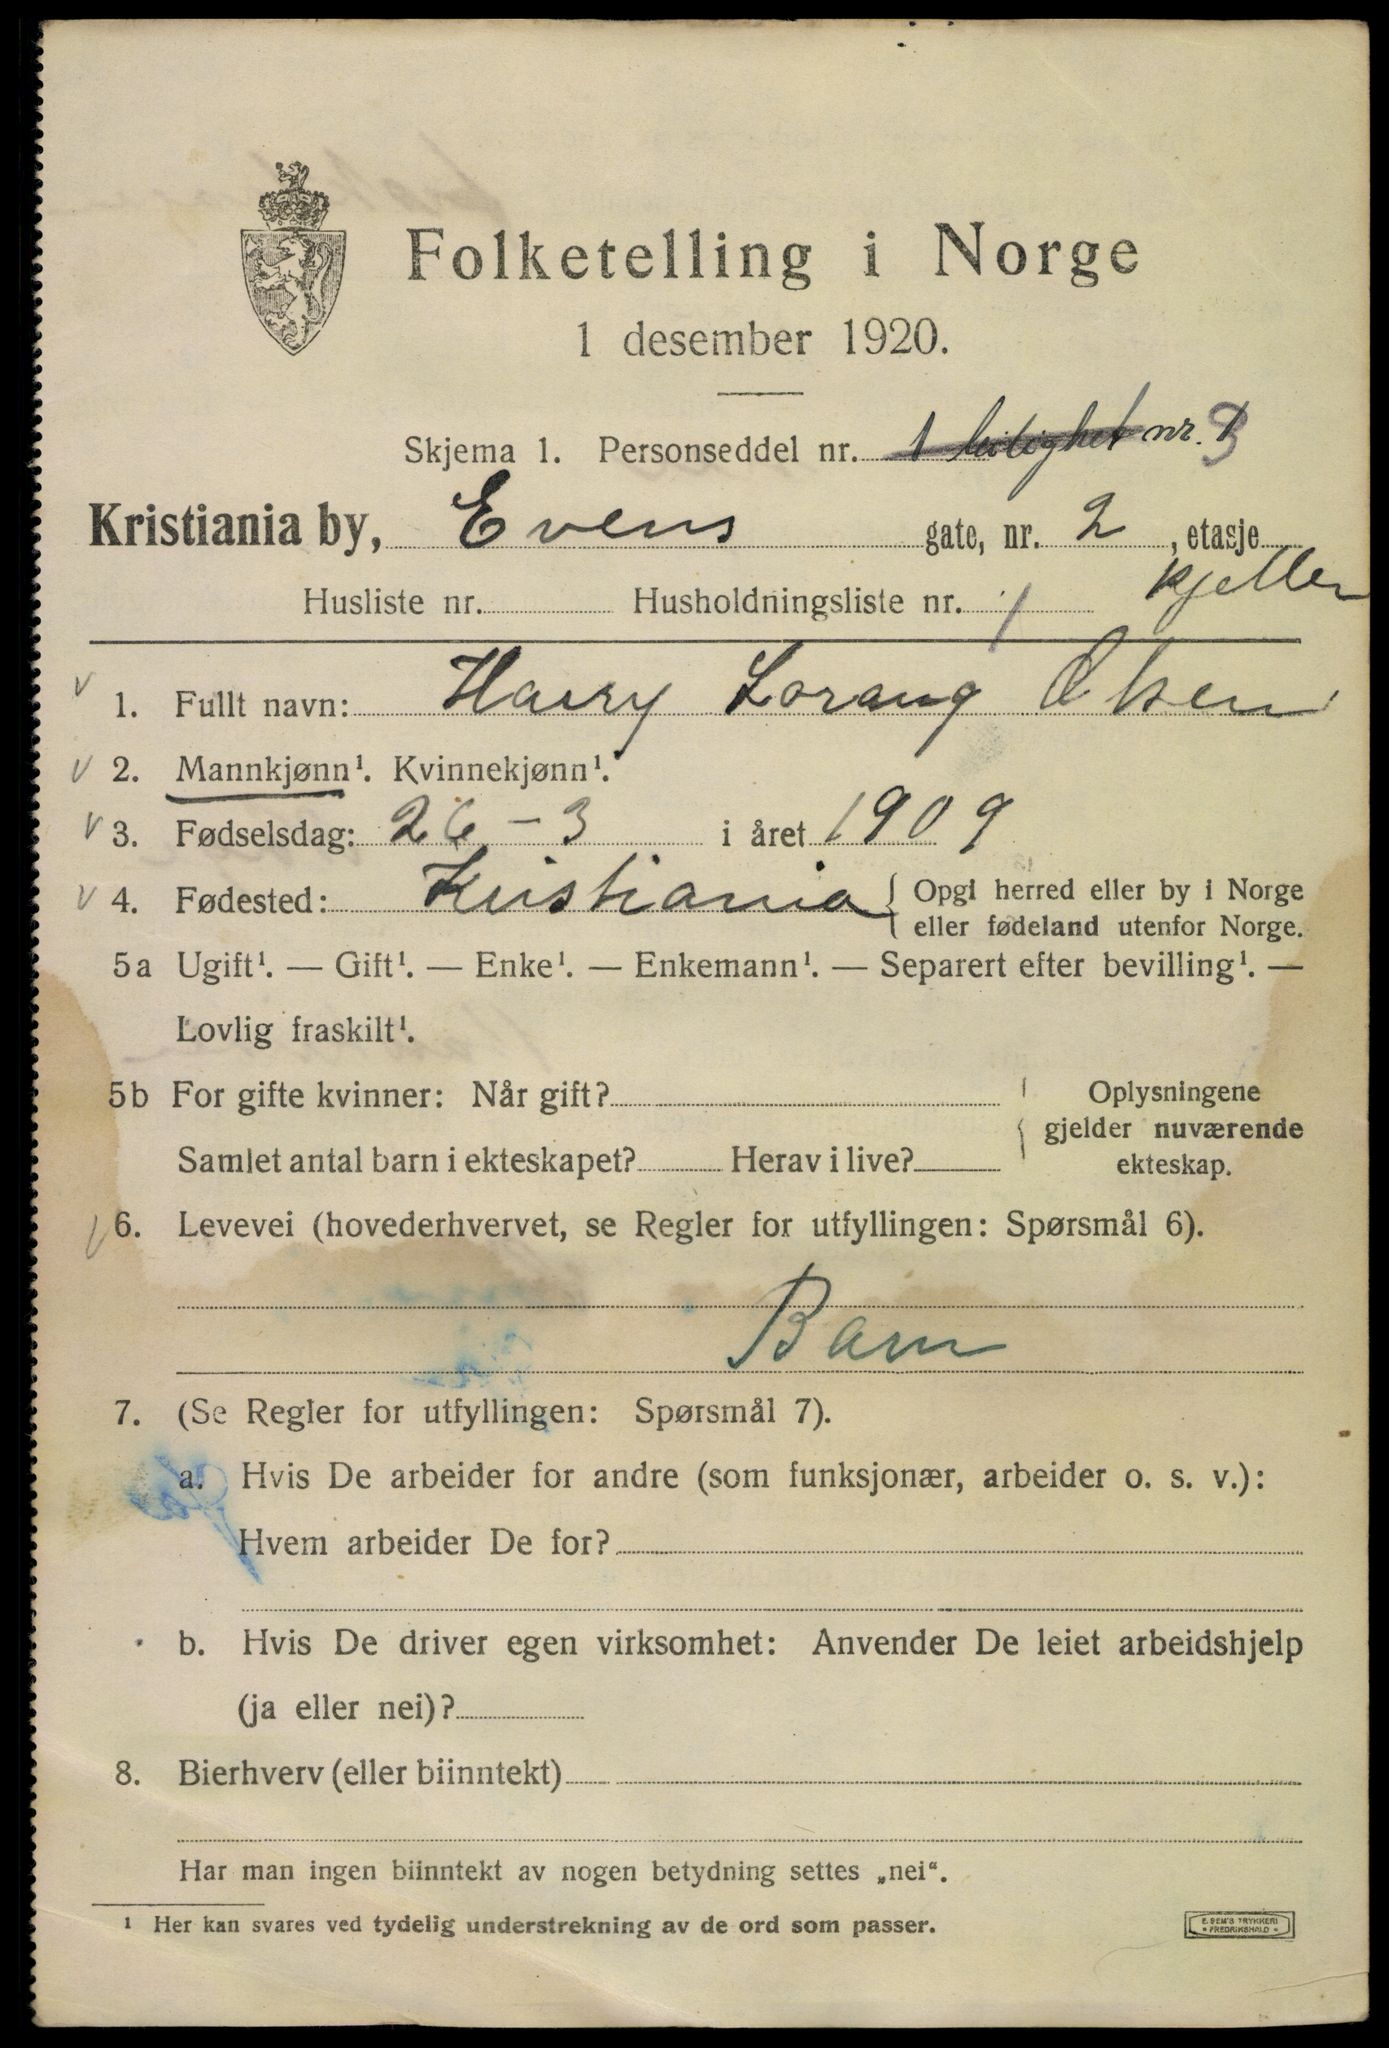 Folketelling i Norge
1 desember 1920.
Skjema 1. Personseddel nr. 1 leilighet nr. 3
Kristiania by, Evens gate, nr. 2, etasje kjeller
Husliste nr. Husholdningsliste nr. 1
1. Fullt navn: Harry Lorang Olsen
2. Mannkjønn¹. Kvinnekjønn¹.
3. Fødselsdag: 26 – 3 i året 1909
4. Fødested: Kristiania { Opgi herred eller by i Norge
eller fødeland utenfor Norge.
5a Ugift¹. — Gift¹. — Enke¹. — Enkemann¹. — Separert efter bevilling¹. —
Lovlig fraskilt¹.
5b For gifte kvinner: Når gift? Oplysningene
gjelder nuværende
Samlet antal barn i ekteskapet? Herav i live? ekteskap.
6. Levevei (hovederhvervet, se Regler for utfyllingen: Spørsmål 6).
Barn
7. (Se Regler for utfyllingen: Spørsmål 7).
a. Hvis De arbeider for andre (som funksjonær, arbeider o. s. v.):
Hvem arbeider De for?
b. Hvis De driver egen virksomhet: Anvender De leiet arbeidshjelp
(ja eller nei)?
8. Bierhverv (eller biinntekt)
Har man ingen biinntekt av nogen betydning settes „nei“.
¹ Her kan svares ved tydelig understrekning av de ord som passer.
E. SEM'S TRYKKERI
FREDRIKSHALD